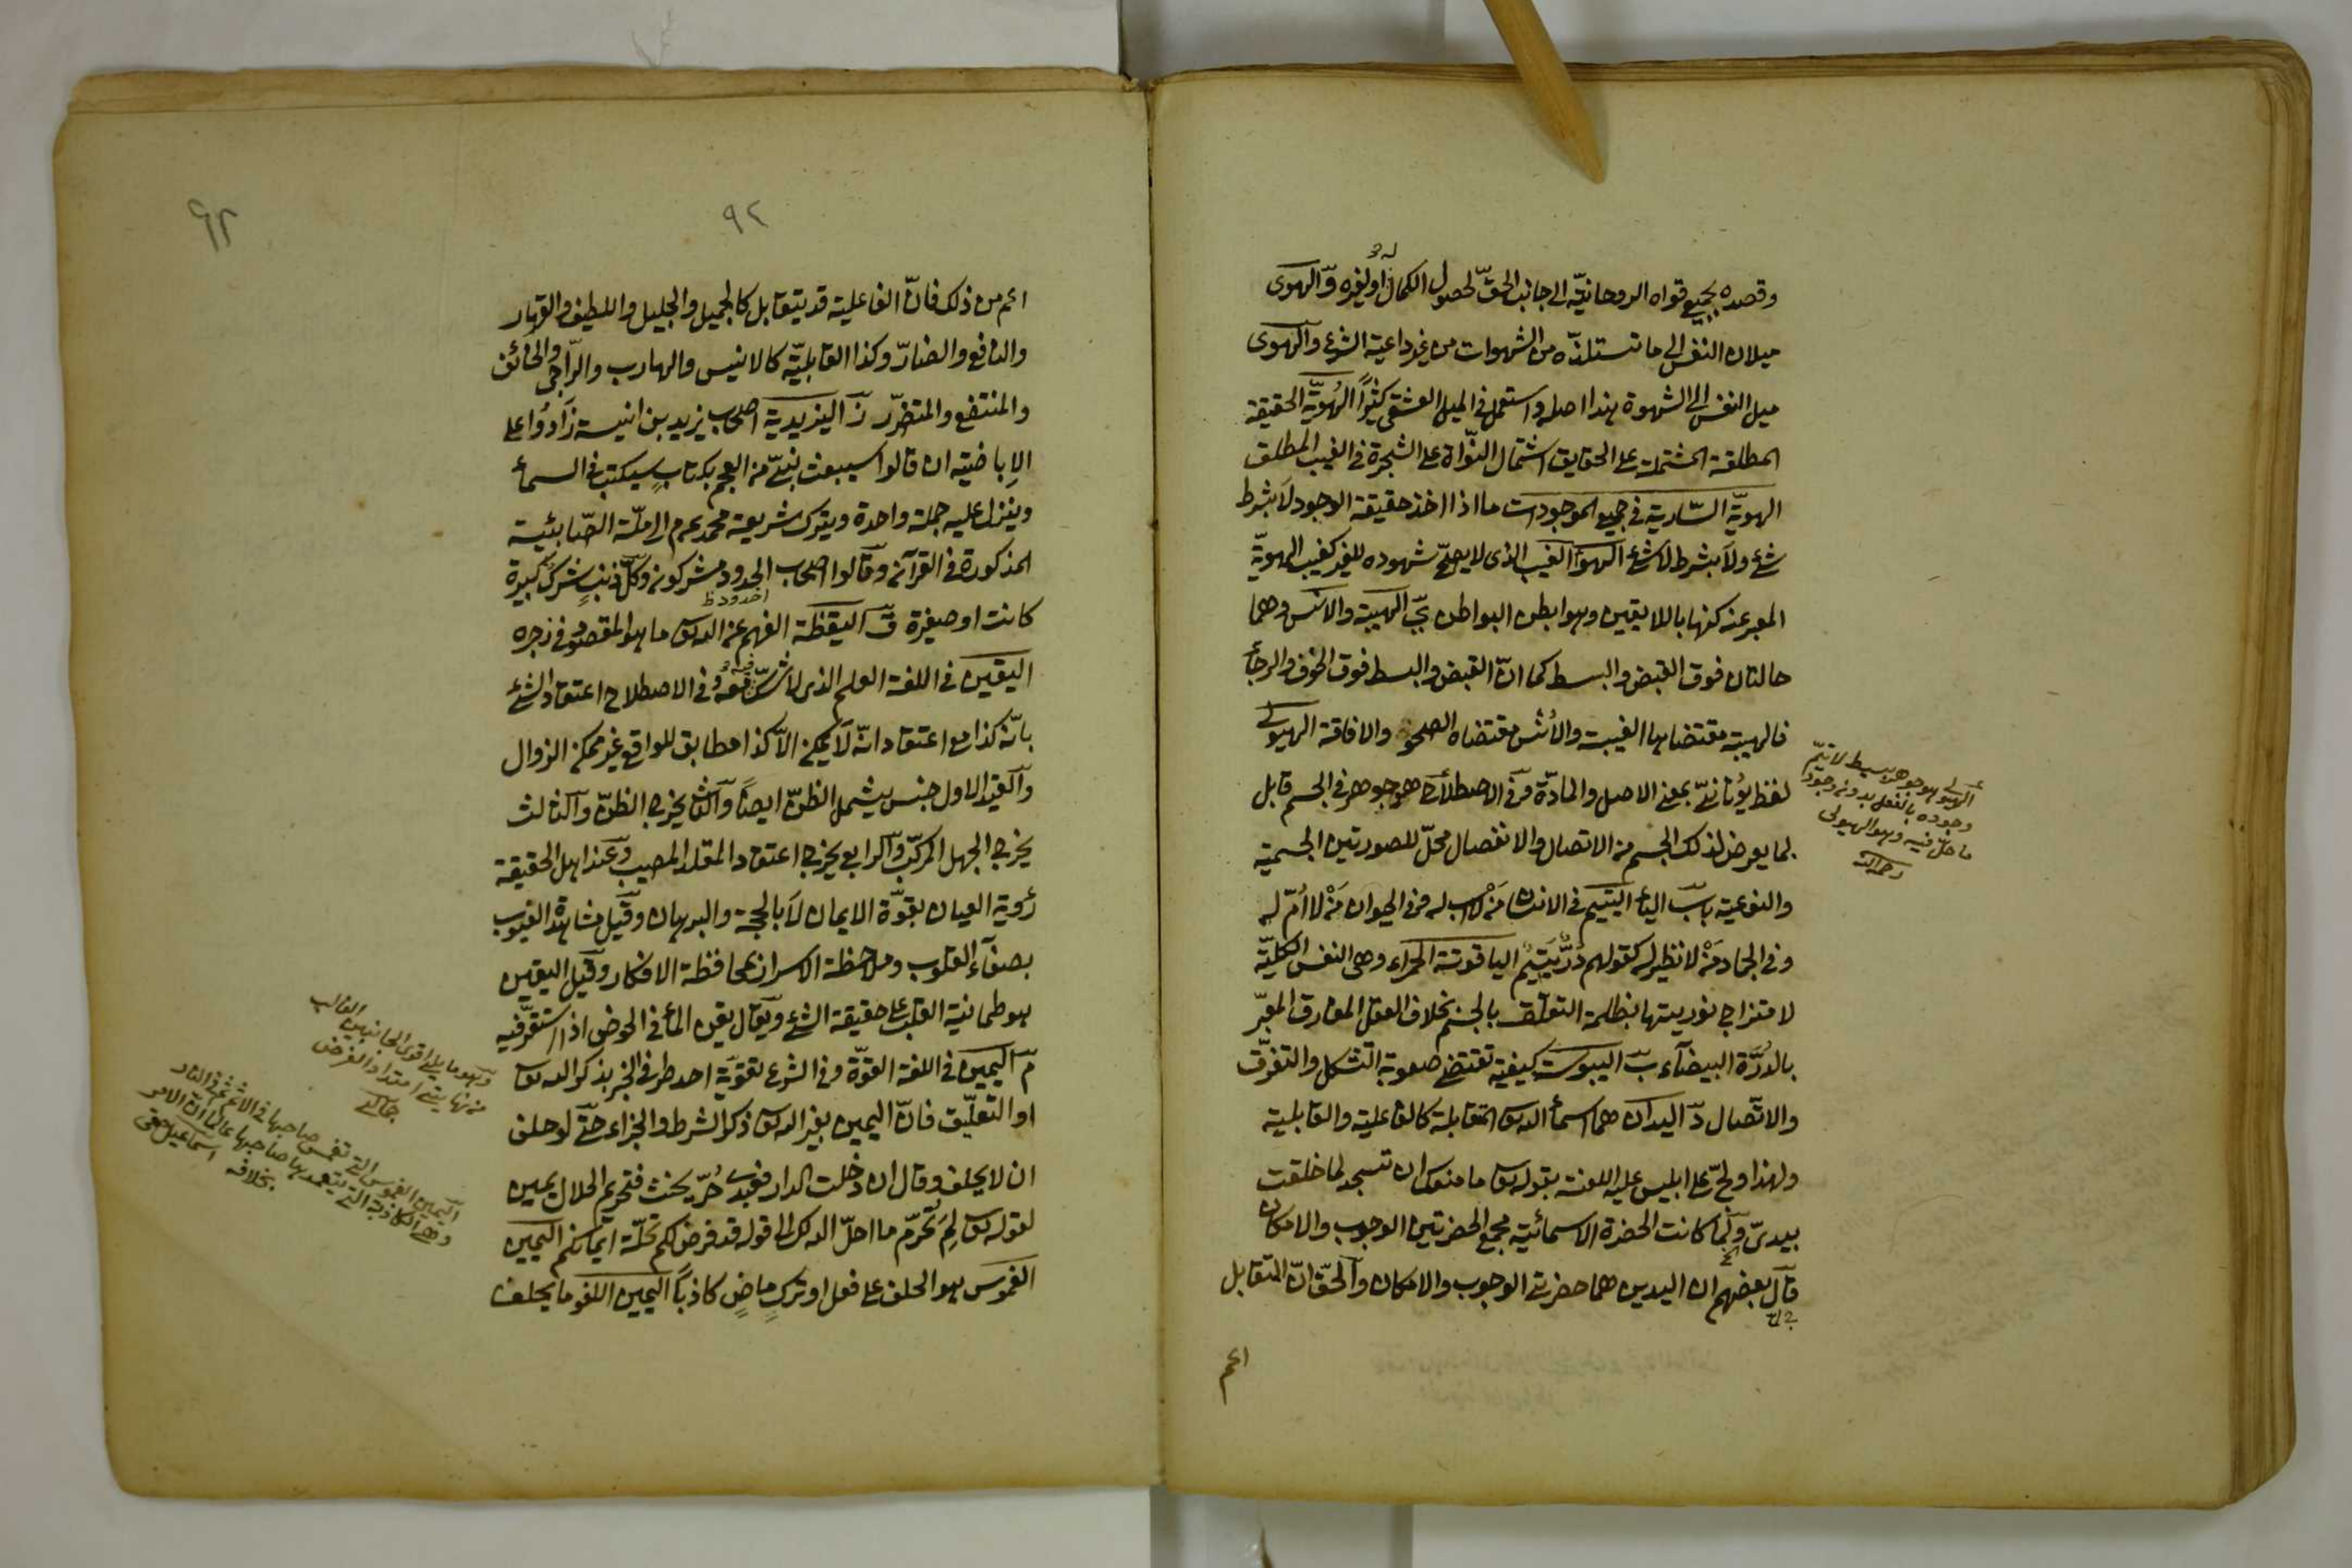 وقصده بجميع قواه الروحانيّة الى جانب الحقّ لحصول الكمال له او لغيره وّ الهوى
ميلان النفس الى ما تستلذّه من الشهوات من غير داعية الشرع والهوى
ميل النفس الى الشهوة هذا اصله واستعمل في الميل العشقي كثيراً الهُويّة الحقيقة
المطلقة المشتملة على الحقايق اشتمال النّواة على الشجرة في الغيب المطلق
الهويّة السّارية في جميع الموجودات ما اذا اخذ حقيقة الوجود لا بشرط
شئ ولا بشرط لا شئ الهوَ الغيب الذى لا يصحّ شهوده للغير كغيب الهويّة
المعبر عنه كنها باللا يقين وهو ابطن البواطن يّ الهيبة والانس وهما
حالتان فوق القبض والبسط كما انّ القبض والبسط فوق الخوف والرجاء
فالهيبة مقتضاها الغيبة والأنس مقتضاه الصحو والافاقة الهيولى
لفظ يونانيّ بمعنى الاصل والمادّة وفى الاصطلاح هى جوهر في الجسم قابل
لما يعرض لذلك الجسم من الاتصال والانفصال محلّ للصورتين الجسمية
والنوعية باب الياء اليتيم في الانسان مَنْ لا اب له وفى الحيوان مَنْ لا أمّ له
وفى الجماد مَنْ لا نظير له كقولهم دُرٌّ يَتيمٌ الياقوتة الحمراء وهى النفس الكليّة
لامتزاج نوريتها بظلمة التعلّق بالجسم بخلاف العقل المفارق المعبّر
بالدُّرَّة البيضآء بّ اليبوسة كيفية تقتضى صعوبة التشكل والتفرّق
والاتّصال دّ اليدان هما اسماء الله تعالى المتقابلة كالفاعلية والقابلية
ولهذا وبّخ على ابليس عليه اللعنة بقوله تعالى ما منعك ان تسجد لما خلقت
بيدىّ ولمّا كانت الحضرة الاسمائية مجمع الحضرتين الوجوب والامكان
قال بعضهم ان اليدين هما حضرتى الوجوب والامكان والحقّ انّ التقابل
اعم
الهيولى هو جوهر بسيط لا يتمّ
وجوده بالفعل بدون وجود
ما حلّ فيه وهو الهيولى
رحمه الله
٩٢
٩٢
اعم من ذلك فانّ الفاعلية قد يتقابل كالجميل والجليل واللطيف والقهار
والنافع والضارّ وكذا القابليّة كالانيس والهارب والرّاجى والخائف
والمنتفع والمتضرّر زّ اليزيدية اصحاب يزيد بن انيسة زادوا على
الاِباضيّة ان قالوا سيبعث نبىّ من العجم بكتابٍ سيكتب في السماء
وينزل عليه جملة واحدة ويترك شريعة محمد عم م الى ملّة الصّابئية
المذكورة في القرآن وقالوا اصحاب الحدود مشركون وكلّ ذنبٍ شركٌ كبيرة
اخدود ظ
كانت او صغيرة قّ اليقظة الفهم عن الله تعالى ما هو المقصود في زجره
اليقين في اللغة العلم الذى لا شكّ معه وفى الاصطلاح اعتقاد الشئ
بانّه كذا مع اعتقاد انّه لا يمكن الاّ كذا مطابق للواقع غير ممكن الزوال
والقيد الاول جنس يشمل الظنّ ايضاً والثانى يخرج الظنّ والثالث
يخرج الجهل المركّب والرابع يخرج اعتقاد المقلد المصيب وعند اهل الحقيقة
رُوية العيان بقوّة الايمان لا بالحجة والبرهان وقيل مشاهدة الغيوب
بصفآء القلوب وملاحظة الاسرار بمحافظة الافكار وقيل اليقين
هو طمانية القلب على حقيقة الشئ ويقال يقن الماء في الحوض اذا استقرّ فيه
مّ اليمين في اللغة القوّة وفى الشرع تقويّة احد طرفى الخبر بذكر الله تعالى
او التعليق فانّ اليمين بغير الله تعالى ذكر الشرط والجزاء حتّى لو حلف
ان لا يحلف وقال ان دخلت الدار فعبدى حُرّ يحنث فتحريم الحلال يمين
لقوله تعالى لِمَ تُحرّم ما احلّ الله لك الى قوله قد فرض لكم تحلّة ايمانكم اليمين
الغموس هو الحلف على فعل او تركٍ ماضٍ كاذباً اليمين اللغو ما يحلف
وهو ما يلى اقوى الجانبين الغالب
من نهايتى امتداد العرض
اليمين الغموس التى تغمس صاحبها في الاثم ثم في النار
وهى الكاذبة التى يتعمد بها صاحبها عالما انّ الامر
بخلافه اسماعيل حقى